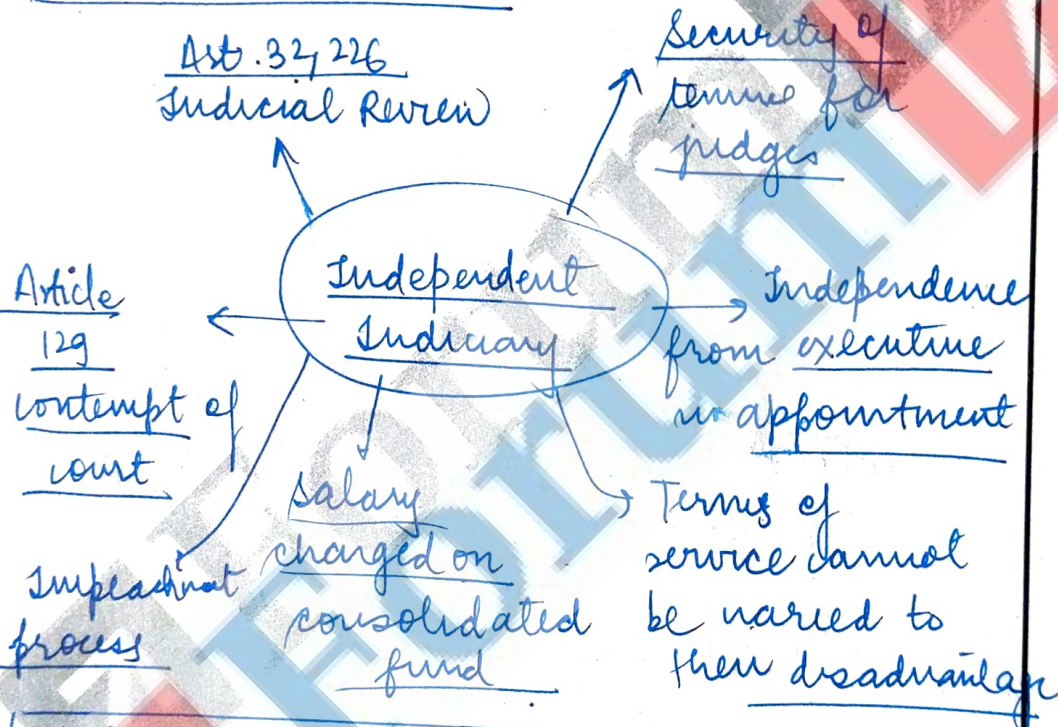 Art. 32, 226
Judicial Review
Security of
tenure for
judges
Independent
Judiciary
Article
129
contempt of
court
Independence
from executive
in appointment
Impeachment
process
Salary
charged on
consolidated
fund
Terms of
service cannot
be varied to
their disadvantage
Forum